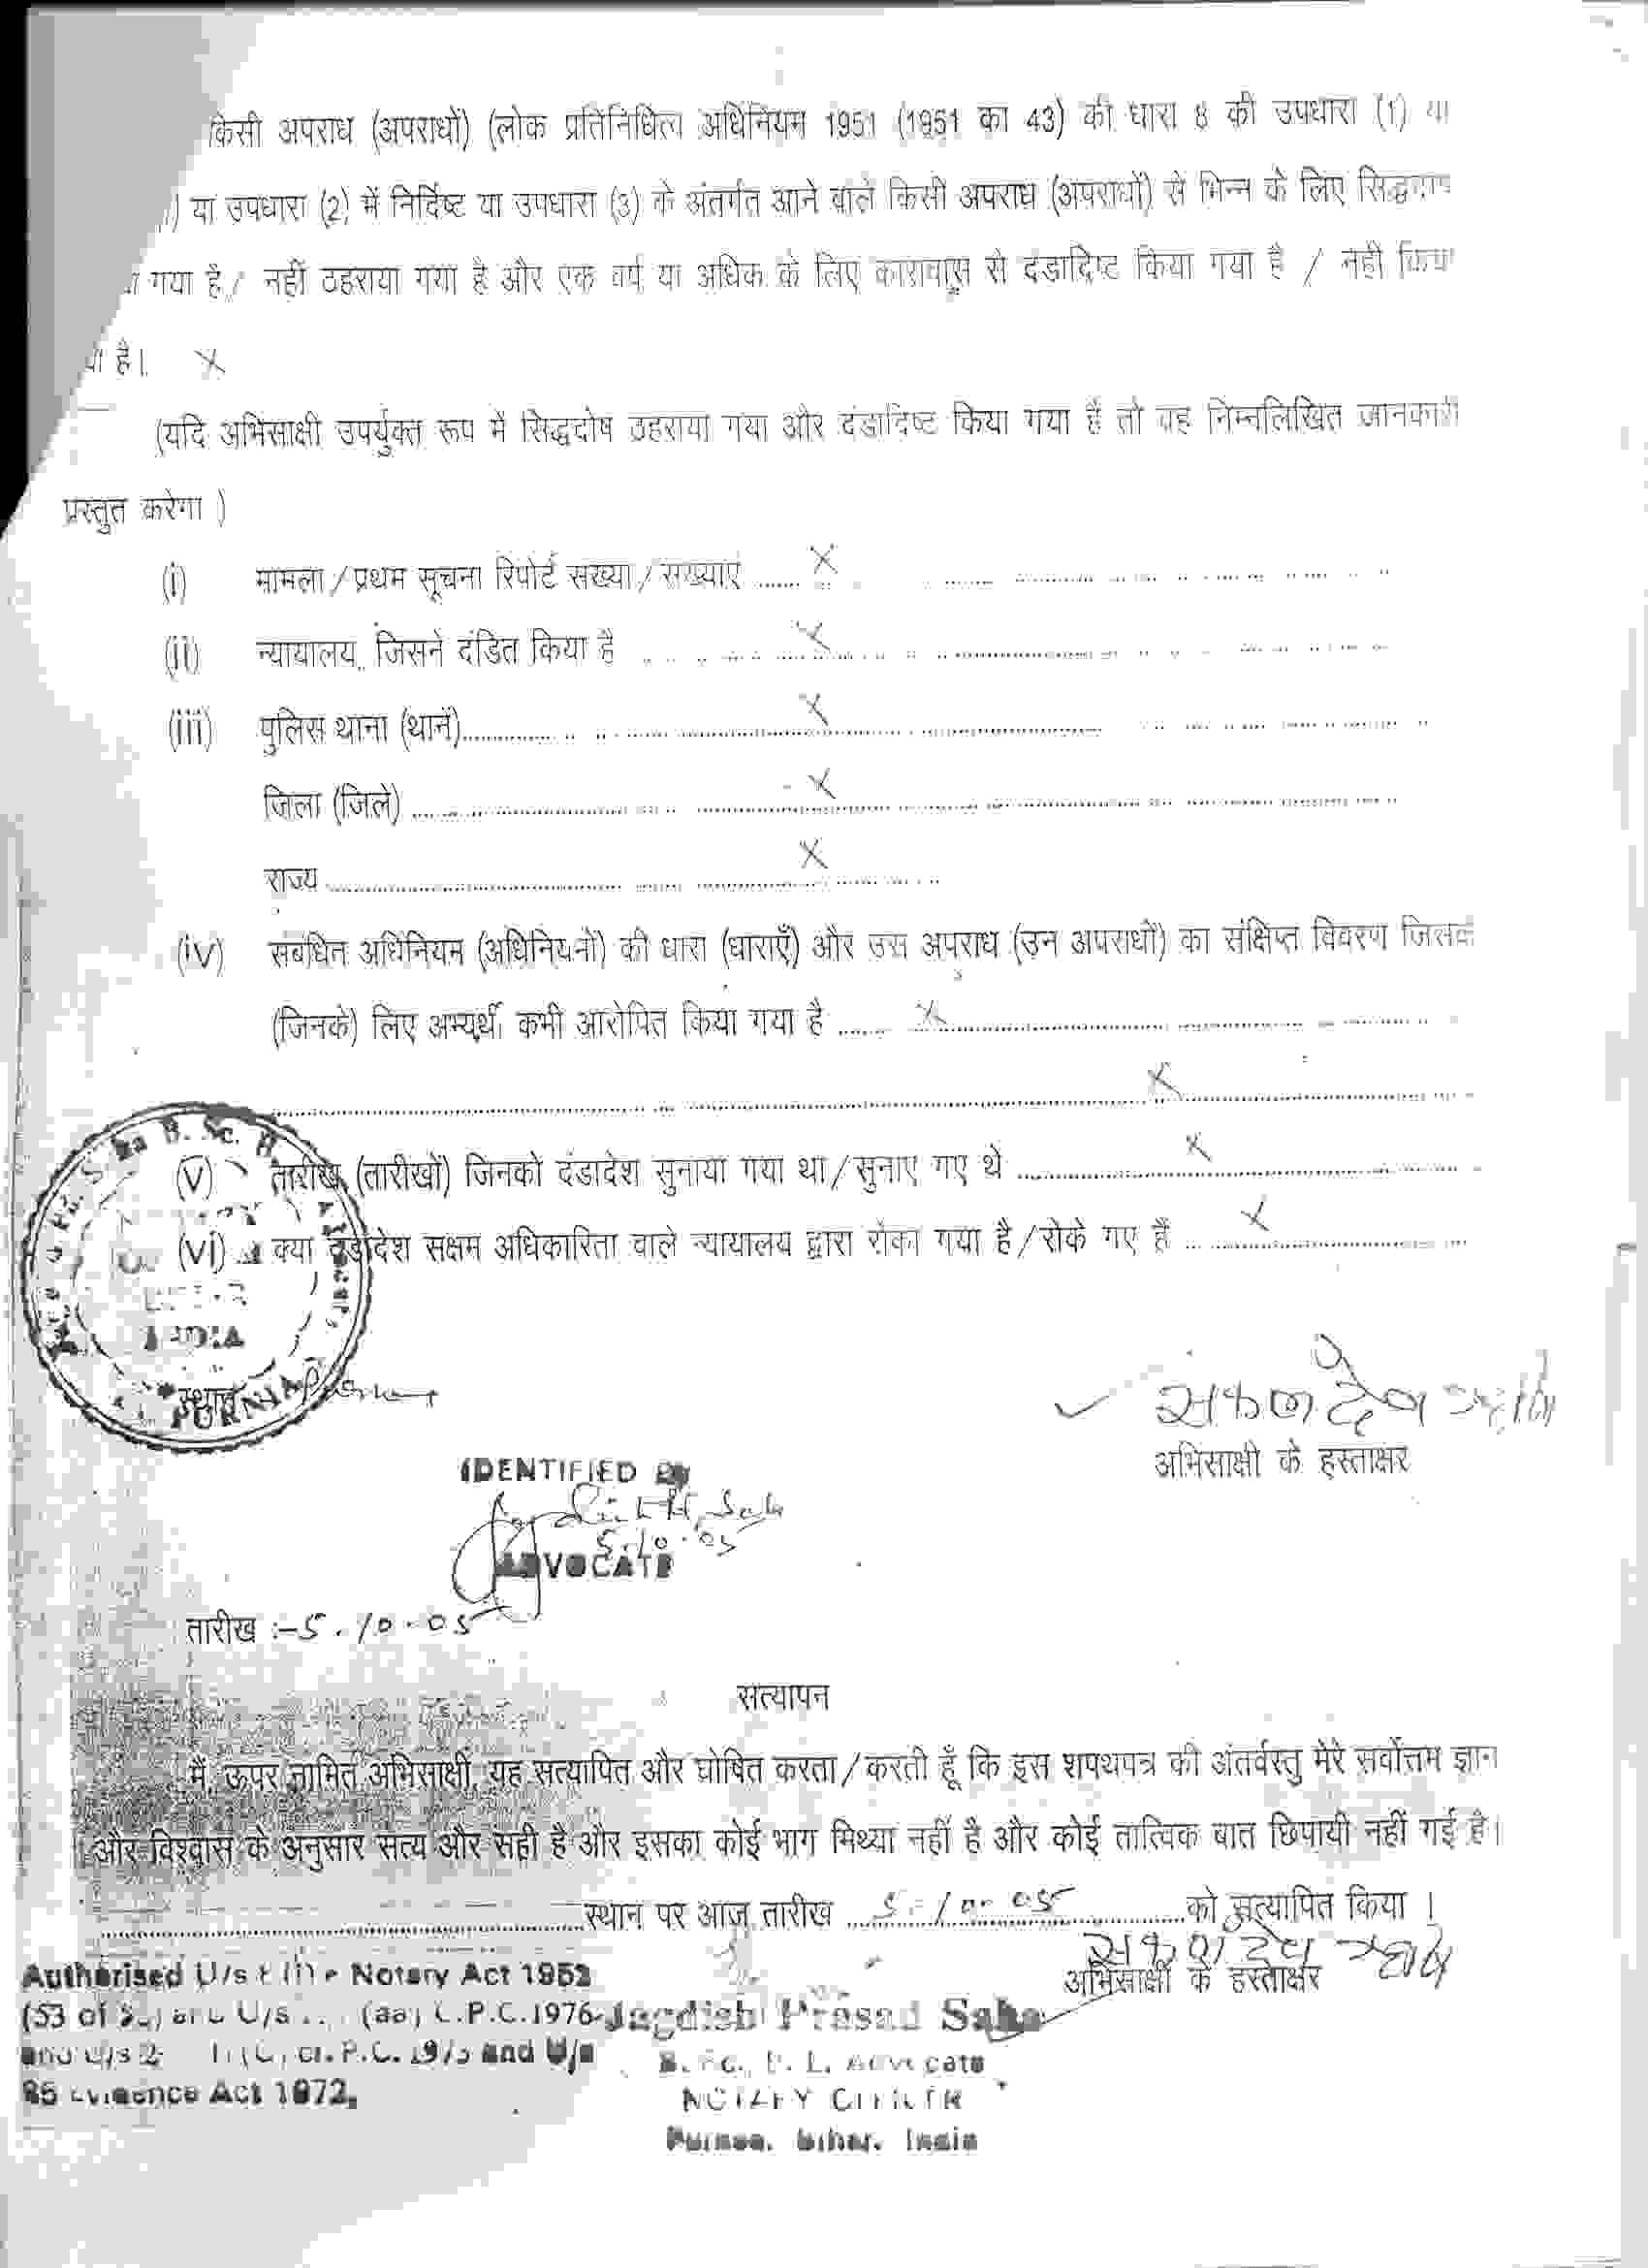 किसी अपराध (अपराधों) (लोक प्रतिनिधित्व अधिनियम 1951 (1951 का 43) की धारा 8 की उपधारा (1) या
) या उपधारा (2) में निर्दिष्ट या उपधारा (3) के अंतर्गत आने वाले किसी अपराध (अपराधों) से भिन्न के लिए सिद्धदोष
गया है / नहीं ठहराया गया है और एक वर्ष या अधिक के लिए कारावास से दंडादिष्ट किया गया है / नहीं किया
है। X
(यदि अभिसाक्षी उपर्युक्त रूप में सिद्धदोष ठहराया गया और दंडादिष्ट किया गया है तो वह निम्नलिखित जानकारी
प्रस्तुत करेगा )
(i) मामला / प्रथम सूचना रिपोर्ट संख्या / संख्याएं ........ X
(ii) न्यायालय, जिसने दंडित किया है ........ X
(iii) पुलिस थाना (थानें) ........ X
जिला (जिले) ........ X
राज्य ........ X
(iv) संबंधित अधिनियम (अधिनियमों) की धारा (धाराएँ) और उस अपराध (उन अपराधों) का संक्षिप्त विवरण जिसके
(जिनके) लिए अभ्यर्थी कभी आरोपित किया गया है ........ X
........ X
(v) तारीख (तारीखों) जिनको दंडादेश सुनाया गया था / सुनाए गए थे ........ X
(vi) क्या दंडादेश सक्षम अधिकारिता वाले न्यायालय द्वारा रोका गया है / रोके गए हैं ........ X
INDIA
स्थान
PURNIA
अभिसाक्षी के हस्ताक्षर
IDENTIFIED By
5.10.05
ADVOCATE
तारीख :- 5.10.05
सत्यापन
मैं, ऊपर नामित अभिसाक्षी, यह सत्यापित और घोषित करता / करती हूँ कि इस शपथपत्र की अंतर्वस्तु मेरे सर्वोत्तम ज्ञान
और विश्वास के अनुसार सत्य और सही है और इसका कोई भाग मिथ्या नहीं है और कोई तात्विक बात छिपायी नहीं गई है।
........ स्थान पर आज तारीख ........ 5.10.05 ........ को सत्यापित किया ।
अभिसाक्षी के हस्ताक्षर
Authorised U/s the Notary Act 1952
(53 of 52) and U/s (aa) C.P.C. 1976
and U/s Cr. P.C. 1973 and U/s
85 Evidence Act 1872.
Jagdish Prasad Saha
B.Sc., B. L. Advocate
NOTARY OFFICER
Purnea, Bihar, India